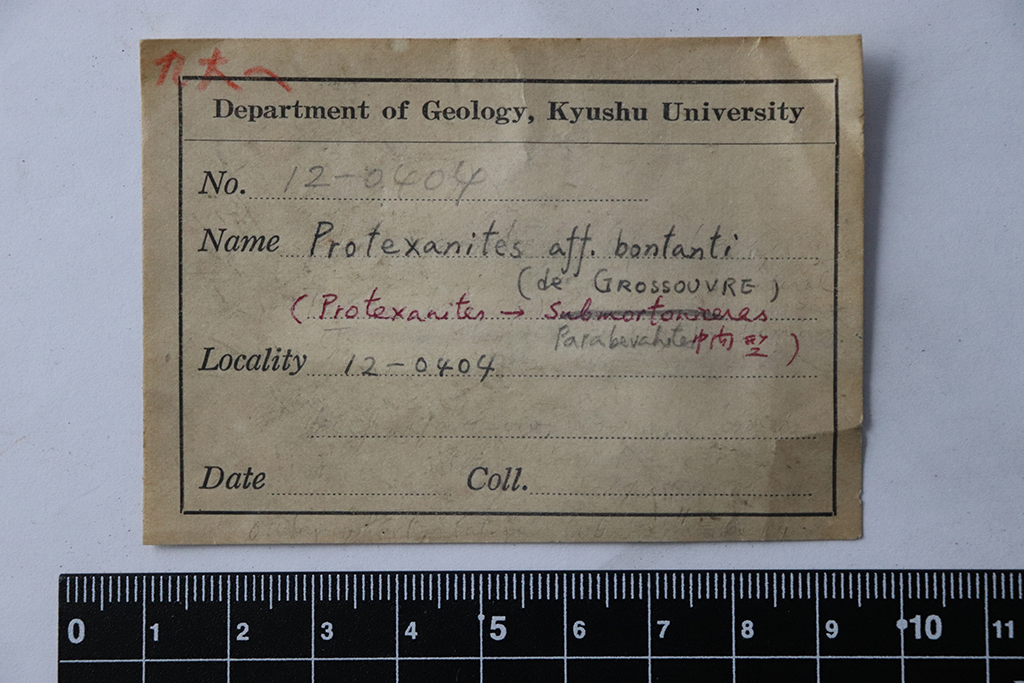 九大へ
Department of Geology, Kyushu University
No. 12-0404
Name Protexanites aff. bontanti
(de GROSSOUVRE)
(Protexanites → Submortoniceras
Parabevahites 中間型)
Locality 12-0404
Date Coll.
0 1 2 3 4 5 6 7 8 9 10 11